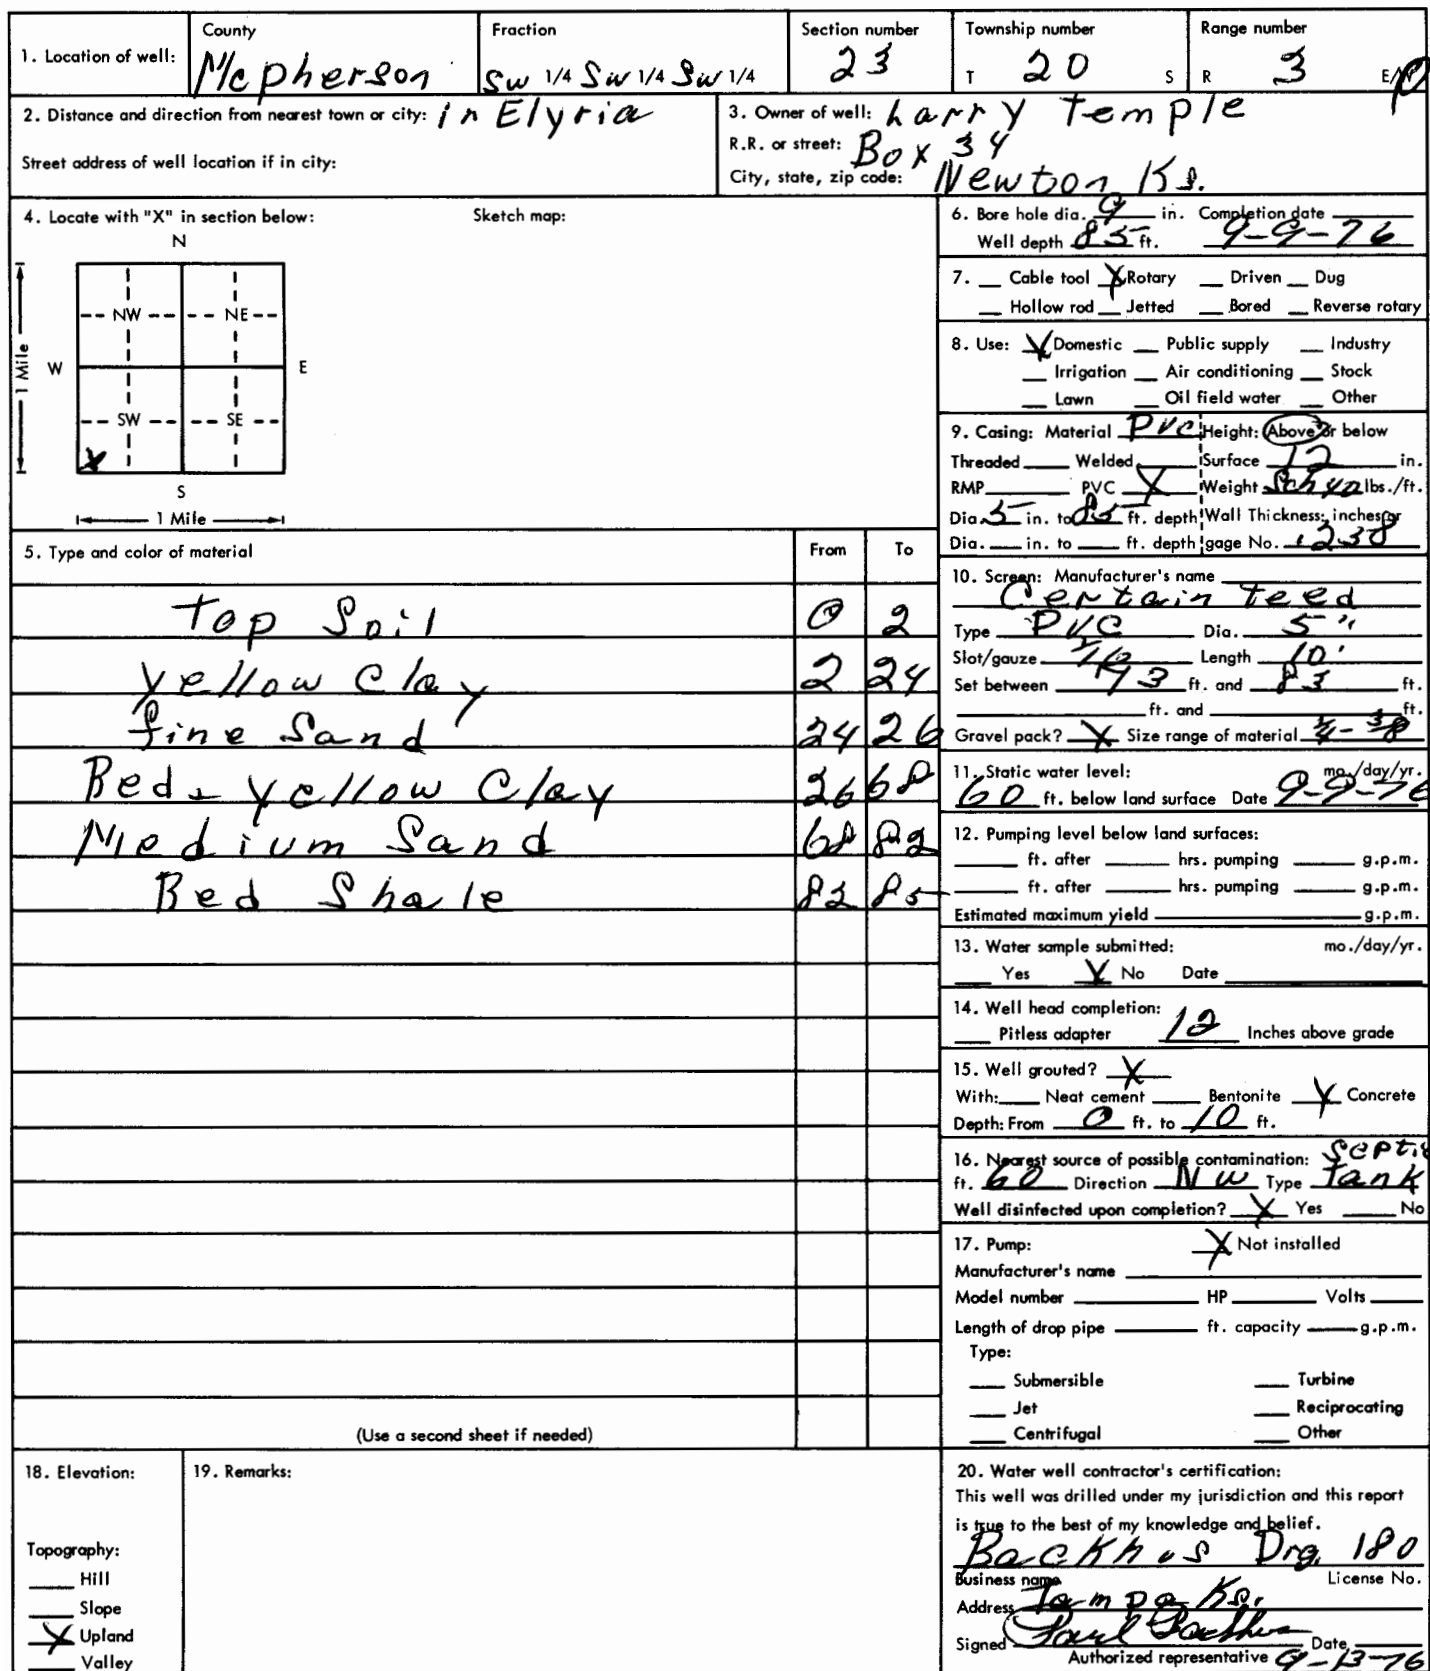 1. Location of well: County McPherson Fraction SW 1/4 SW 1/4 SW 1/4 Section number 23 Township number T 20 S Range number R 3 E/W
2. Distance and direction from nearest town or city: in Elyria
Street address of well location if in city:
3. Owner of well: Larry Temple
R.R. or street: Box 34
City, state, zip code: Newton Ks.
4. Locate with "X" in section below: Sketch map:
N
NW NE
W E
1 Mile
SW SE
X
S
1 Mile
5. Type and color of material From To
Top Soil 0 2
Yellow Clay 2 24
fine Sand 24 26
Red - Yellow Clay 26 68
Medium Sand 68 82
Red Shale 82 85
(Use a second sheet if needed)
6. Bore hole dia. 9 in. Completion date
Well depth 85 ft. 9-9-76
7. Cable tool X Rotary Driven Dug
Hollow rod Jetted Bored Reverse rotary
8. Use: X Domestic Public supply Industry
Irrigation Air conditioning Stock
Lawn Oil field water Other
9. Casing: Material PVC Height: Above or below
Threaded Welded Surface 12 in.
RMP PVC X Weight Sch 40 lbs./ft.
Dia. 5 in. to 85 ft. depth Wall Thickness: inches or
Dia. in. to ft. depth gage No. .238
10. Screen: Manufacturer's name
Certain teed
Type PVC Dia. 5"
Slot/gauze Length 10'
Set between 73 ft. and 83 ft.
ft. and ft.
Gravel pack? X Size range of material 1/4 - 3/8
11. Static water level: mo./day/yr.
60 ft. below land surface Date 9-9-76
12. Pumping level below land surfaces:
ft. after hrs. pumping g.p.m.
ft. after hrs. pumping g.p.m.
Estimated maximum yield g.p.m.
13. Water sample submitted: mo./day/yr.
Yes X No Date
14. Well head completion:
Pitless adapter 12 Inches above grade
15. Well grouted? X
With: Neat cement Bentonite X Concrete
Depth: From 0 ft. to 10 ft.
16. Nearest source of possible contamination: Septic
ft. 60 Direction NW Type Tank
Well disinfected upon completion? X Yes No
17. Pump: X Not installed
Manufacturer's name
Model number HP Volts
Length of drop pipe ft. capacity g.p.m.
Type:
Submersible Turbine
Jet Reciprocating
Centrifugal Other
18. Elevation:
Topography:
Hill
Slope
X Upland
Valley
19. Remarks:
20. Water well contractor's certification:
This well was drilled under my jurisdiction and this report
is true to the best of my knowledge and belief.
Backhus Drg. 180
Business name License No.
Address Tampa Ks.
Signed Paul Backhus Date
Authorized representative 9-13-76